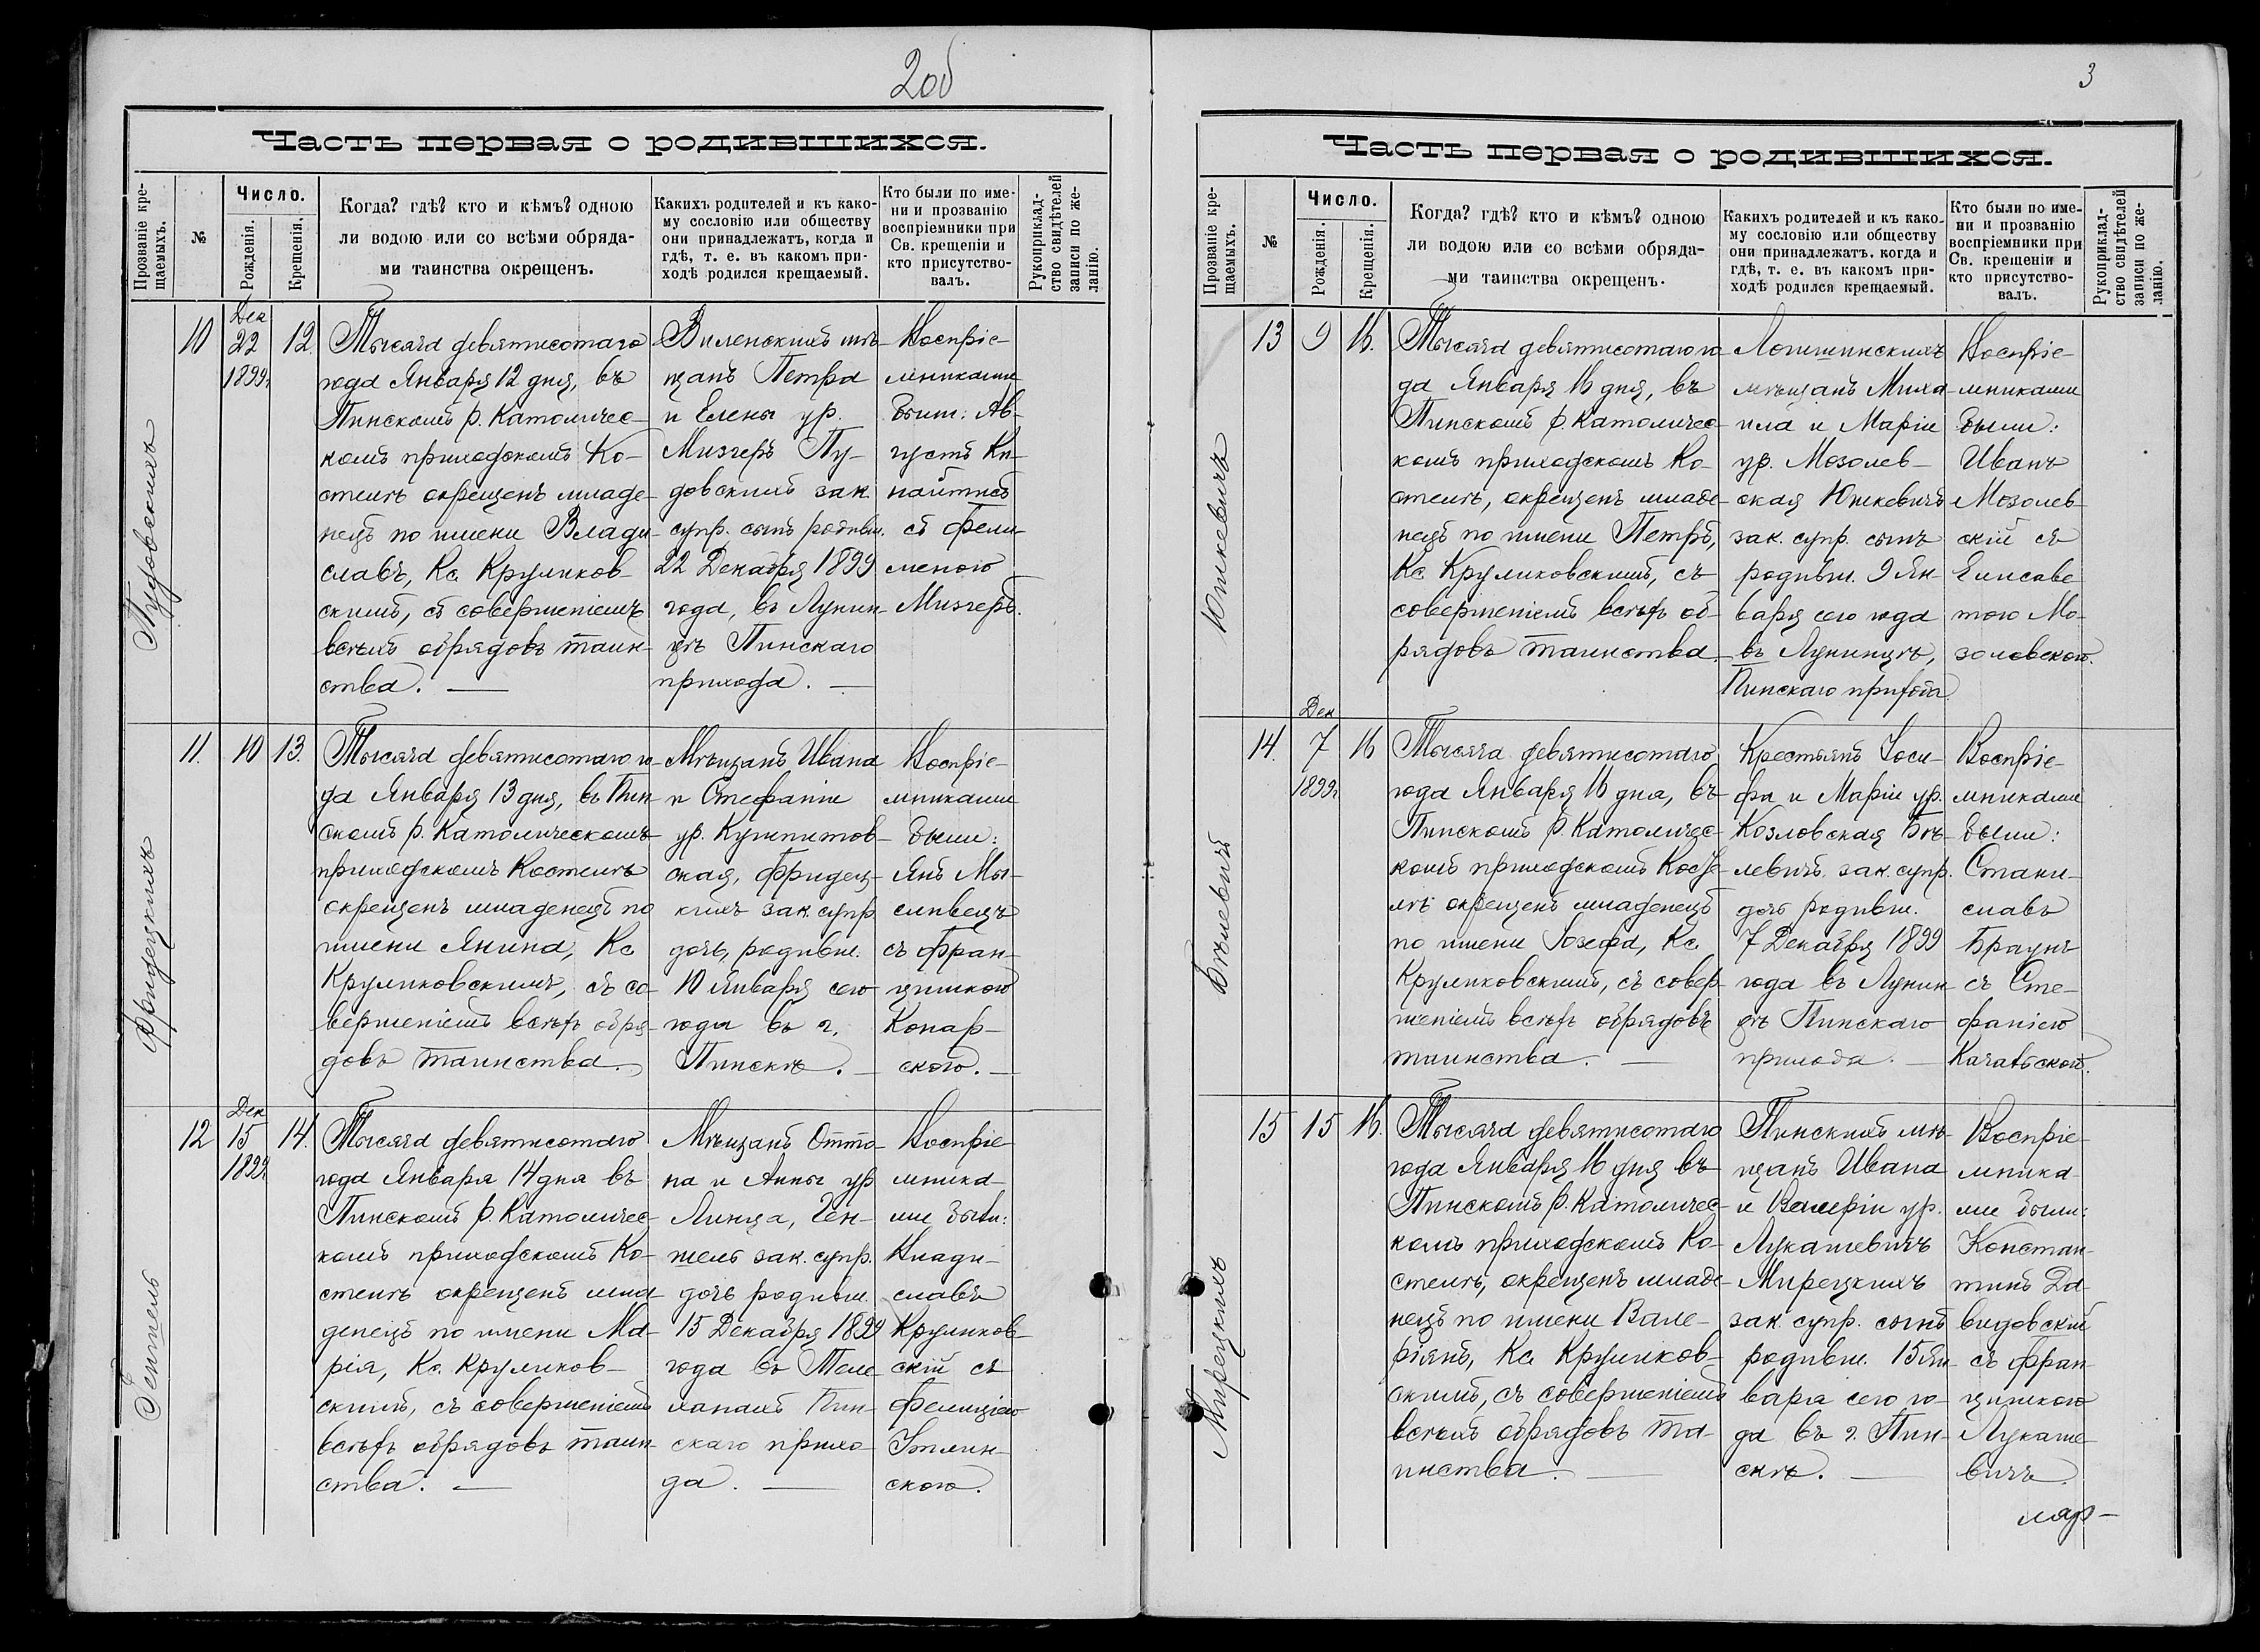 2об
Часть первая о родившихся.
Прозваніе крещаемыхъ.
№
Число.
Рожденія.
Крещенія.
Когда? гдѣ? кто и кѣмъ? одною
ли водою или со всѣми обряда-
ми таинства окрещенъ.
Какихъ родителей и къ како-
му сословію или обществу
они принадлежатъ, когда и
гдѣ, т. е. въ какомъ при-
ходѣ родился крещаемый.
Кто были по име-
ни и прозванію
воспріемники при
Св. крещеніи и
кто присутство-
валъ.
Рукоприклад-
ство свидѣтелей
записи по же-
ланію.
Пудовскихъ
10
Дек
22
1899г.
12.
Тысяча девятисотаго
года Января 12 дня, въ
Пинскомъ р. Католичес-
комъ приходскомъ Ко-
стелѣ окрещенъ младе-
нецъ по имени Влади-
славъ, Кс. Круликов-
скимъ, съ совершеніемъ
всѣхъ обрядовъ таин-
ства. —
Виленскихъ мѣ-
щанъ Петра
и Елены ур.
Мизгеръ Пу-
довскихъ зак.
супр. сынъ родивш.
22 Декабря 1899
года, въ Лунин-
цѣ Пинскаго
прихода. —
Воспріе-
мниками
были: Ав-
густъ Ки-
найтисъ
съ Фели-
меною
Мизгеръ.
Фридецкихъ
11.
10
13.
Тысяча девятисотаго го-
да Января 13 дня, въ Пин-
скомъ р. Католическомъ
приходскомъ Костелѣ
окрещенъ младенецъ по
имени Янина, Кс.
Круликовскимъ, съ со-
вершеніемъ всѣхъ обря-
довъ таинства.
Мѣщанъ Ивана
и Стефаніи
ур. Кушпитов-
ская, Фридец-
кихъ зак. супр.
дочь, родивш.
10 Января сего
года въ г.
Пинскѣ. —
Воспріе-
мниками
были:
Янъ Мы-
сливецъ
съ Фран-
цишкою
Конар-
скою. —
Гентель
12
Дек
15
1899г.
14.
Тысяча девятисотаго
года Января 14 дня въ
Пинскомъ р. Католичес-
комъ приходскомъ Ко-
стелѣ окрещенъ мла-
денецъ по имени Ма-
рія, Кс. Круликов-
скимъ, съ совершеніемъ
всѣхъ обрядовъ таин-
ства. —
Мѣщанъ Отто-
на и Анны ур.
Линца, Ген-
тель зак. супр.
дочь родивш.
15 Декабря 1899
года въ Теле-
ханахъ Пин-
скаго прихо-
да. —
Воспріе-
мника-
ми были:
Влади-
славъ
Круликов-
скій съ
Фелиціею
скою.
3
Часть первая о родившихся.
Прозваніе крещаемыхъ.
№
Число.
Рожденія.
Крещенія.
Когда? гдѣ? кто и кѣмъ? одною
ли водою или со всѣми обряда-
ми таинства окрещенъ.
Какихъ родителей и къ како-
му сословію или обществу
они принадлежатъ. когда и
гдѣ, т. е. въ какомъ при-
ходѣ родился крещаемый.
Кто были по име-
ни и прозванію
воспріемники при
Св. крещеніи и
кто присутство-
валъ.
Рукоприклад-
ство свидѣтелей
записи по же-
ланію.
Юшкевичъ
13
9
16.
Тысяча девятисотаго го-
да Января 16 дня, въ
Пинскомъ р. Католичес-
комъ приходскомъ Ко-
стелѣ, окрещенъ младе-
нецъ по имени Петръ,
Кс. Круликовскимъ, съ
совершеніемъ всѣхъ об-
рядовъ таинства.
Логишинскихъ
мѣщанъ Миха-
ила и Маріи
ур. Мозолев-
ская Юшкевичъ
зак. супр. сынъ
родивш. 9 Ян-
варя сего года
въ Лунинцѣ,
Пинскаго прихода
Воспріе-
мниками
были:
Иванъ
Мозолев-
скій съ
Елисаве-
тою Мо-
золевскою.
Бѣлевичъ
14.
Дек
7
1899г.
16
Тысяча девятисотаго
года Января 16 дня, въ
Пинскомъ р. Католичес-
комъ приходскомъ Косте-
лѣ окрещенъ младенецъ
по имени Іозефа, Кс.
Круликовскимъ, съ совер-
шеніемъ всѣхъ обрядовъ
таинства. —
Крестьянъ Іоси-
фа и Маріи ур.
Козловская Бѣ-
левичъ зак. супр.
дочь родивш.
7 Декабря 1899
года въ Лунин-
цѣ Пинскаго
прихода. —
Воспріе-
мниками
были:
Стани-
славъ
Браунъ
съ Сте-
фаніею
Качаньскою.
Мирецкихъ
15
15
16.
Тысяча девятисотаго
года Января 16 дня въ
Пинскомъ р. Католичес-
комъ приходскомъ Ко-
стелѣ, окрещенъ младе-
нецъ по имени Вале-
ріянъ, Кс. Круликов-
скимъ, съ совершеніемъ
всѣхъ обрядовъ та-
инства. —
Пинскихъ мѣ-
щанъ Ивана
и Валеріи ур.
Лукашевичъ
Мирецкихъ
зак. супр. сынъ
родивш. 15 Ян-
варя сего го-
да въ г. Пин-
скѣ. —
Воспріе-
мника-
ми были:
Констан-
тинъ Да-
видовскій
съ Фран-
цишкою
Лукаше-
вичъ.